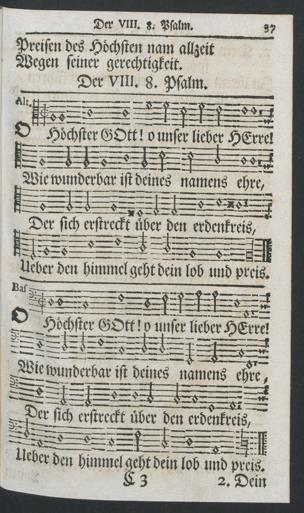 Der VIII. 8. Psalm. 37
Preisen des Höchsten nam allzeit
Wegen seiner gerechtigkeit.
Der VIII. 8. Psalm.
Alt.
O Höchster GOtt! o unser lieber HErre!
Wie wunderbar ist deines namens ehre,
Der sich erstreckt über den erdenkreis,
Ueber den himmel geht dein lob und preis.
Bas
O Höchster GOtt! o unser lieber HErre!
Wie wunderbar ist deines namens ehre,
Der sich erstreckt über den erdenkreis,
Ueber den himmel geht dein lob und preis.
C 3 2. Dein